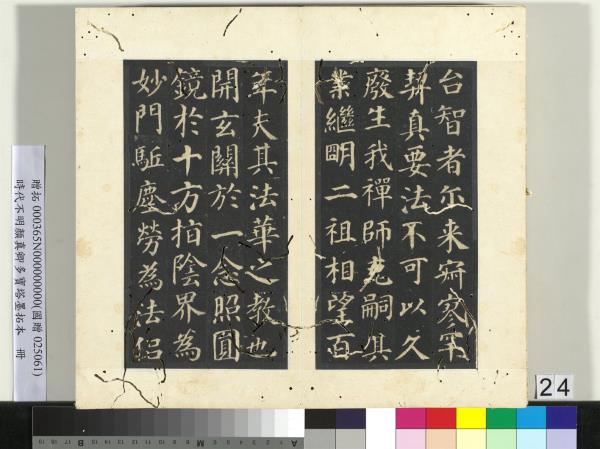 台智者尔来寂寥罕
契真要法不可以久
廢生我禪師克嗣其
業繼明二祖相望百
年夫其法華之教也
開玄關於一念照圓
鏡於十方指陰界為
妙門駈塵勞為法侣
贈拓 000365N000000000(國贈 025061)
時代不明顏真卿多寶塔墨拓本 冊
24